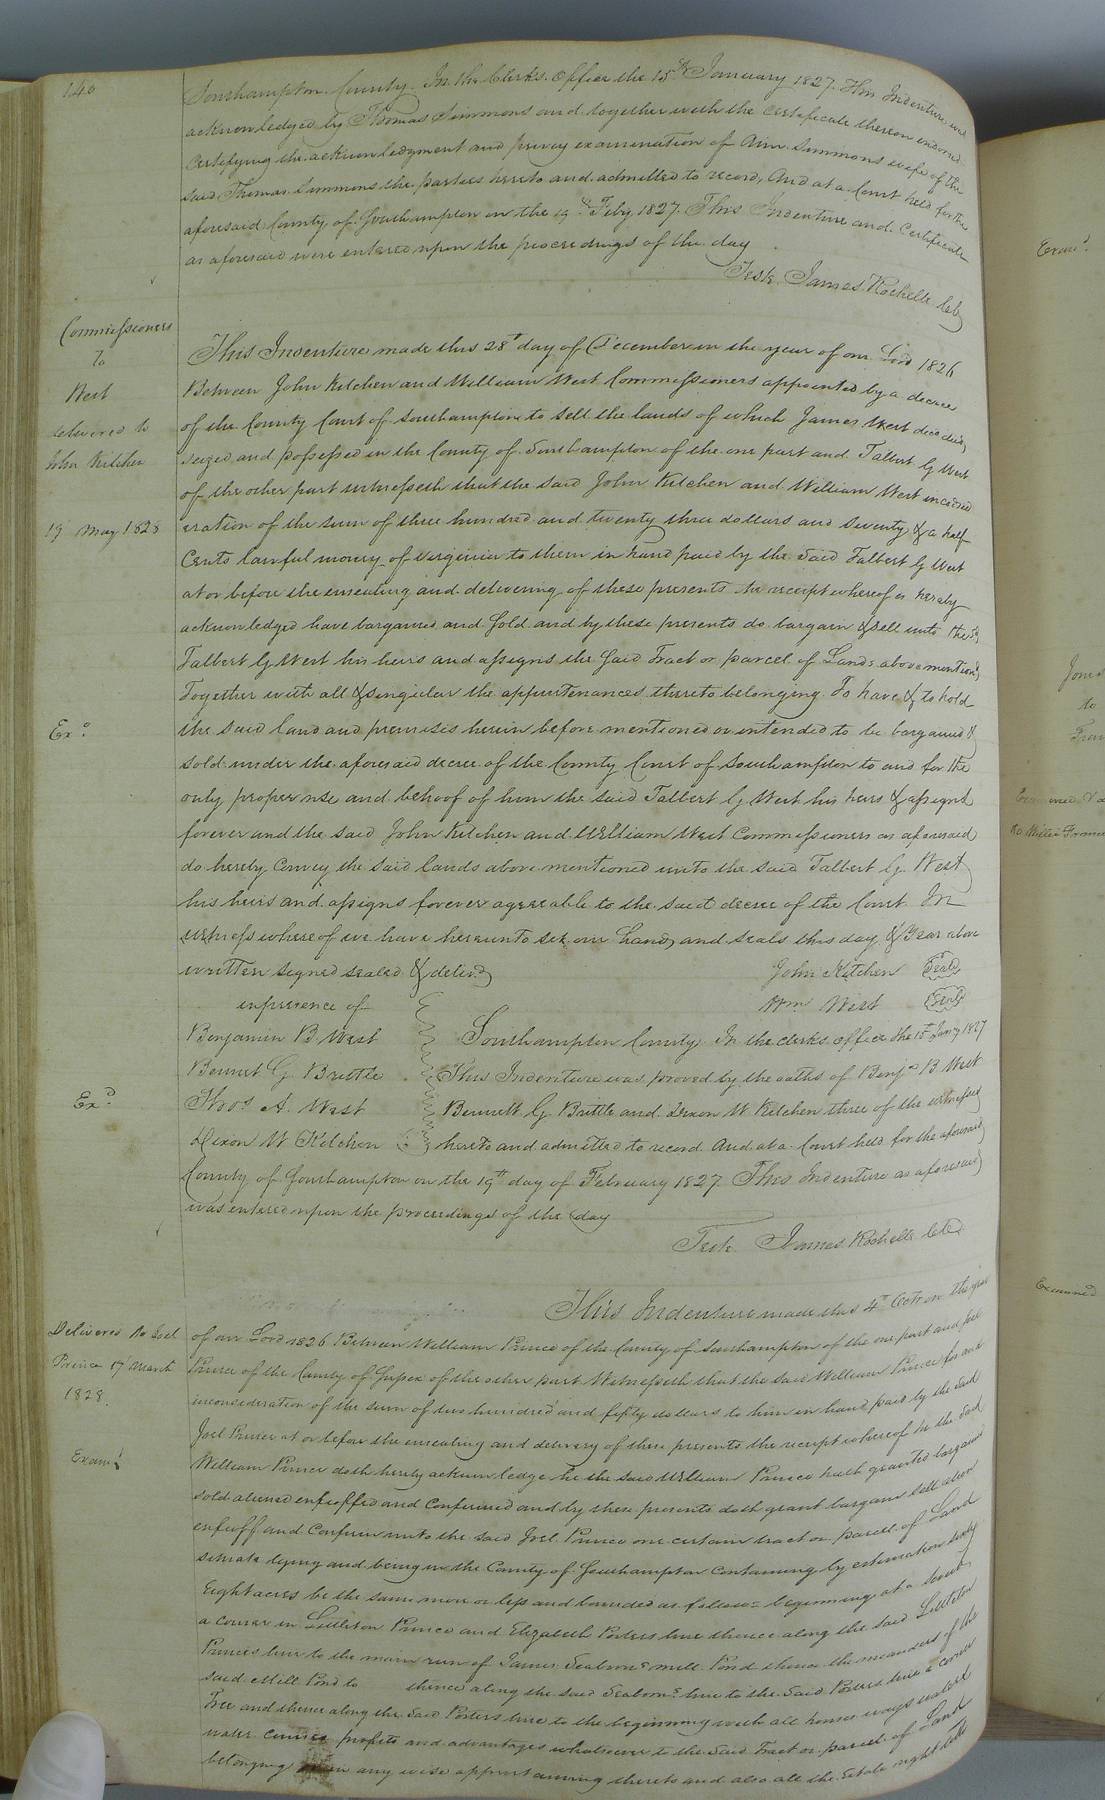 140
Southampton County. In the Clerks Office the 15th January 1827. This Indenture was
acknowledged by Thomas Simmons and together with the certificate thereon endorsed
certifying the acknowledgment and privay examination of Ann Simmons wife of the
said Thomas Simmons the parties hereto and admitted to record, And at a Court held for the
aforesaid County of Southampton on the 19th Feby 1827. This Indenture and Certificate
as aforesaid were entered upon the proceedings of the day
Teste James Rochelle
Commissioners
To
West
delivered to
John Kitchen
19 May 1828
This Indenture made this 28t day of December in the year of our Lord 1826
Between John Kitchen and William West Commissioners appointed by a decree
of the County Court of Southampton to sell the lands of which James West died
seized and possessed in the County of Southampton of the one part and Talbert G West
of the other part witnesseth that the said John Kitchen and William West in consid
eration of the sum of three hundred and twenty three dollars and seventy & a half
Cents lawful money of Virginia to them in hand paid by the said Talbert G West
at or before the ensealing and delivering of these presents the receipt whereof is hereby
acknowledged have bargained and Sold and by these presents do bargain & sell unto the sd
Talbert G West his heirs and assigns the said Tract or parcel of Lands above mentiond
Together with all & singular the appurtenances thereto belonging To have & to hold
Exd
the said land and premises herein before mentioned or intended to be bargained &
sold under the aforesaid decree of the County Court of Southampton to and for the
only proper use and behoof of him the said Talbert G West his heirs & assigns
forever and the said John Kitchen and William West Commissioners as aforesaid
do hereby convey the said lands above mentioned unto the said Talbert G. West
his heirs and assigns forever agreeable to the said decree of the Court In
witness whereof we have hereunto set our hands and seals this day & Year above
written signed sealed & delivd
John Kitchen Seal
in presence of
Wm West Seal
Benjamin B West
Southampton County In the clerks office the 15th Jany 1827
Bennet G Brittle
This Indenture was proved by the oaths of Benja B West
Exd
Thos A. West
Bennett G Brittle and Dixon W Kitchen three of the witnesses
Dixon W Kitchen
hereto and admitted to record And at a Court held for the aforesaid
County of Southampton on the 19th day of February 1827. This Indenture as aforesaid
was entered upon the proceedings of the day
Teste James Rochelle
This Indenture made this 4th Octr in the year
Delivered to Joel
Prince 17 March
1828.
of our Lord 1826 Between William Prince of the County of Southampton of the one part and Joel
Prince of the County of Sussex of the other part Witnesseth that the said William Prince for and
in consideration of the sum of two hundred and fifty dollars to him in hand paid by the said
Joel Prince at or before the ensealing and delivery of these presents the receipt whereof he the said
Examd
William Prince doth hereby acknowledge he the said William Prince hath granted bargained
sold aliened enfeoffed and confirmed and by these presents doth grant bargain sell alien
enfeoff and Confirm unto the said Joel Prince one certain tract or parcel of Land
situate lying and being in the County of Southampton containing by estimation sixty
Eight acres be the same more or less and bounded as follows beginning at a
a corner in Littleton Prince and Elizabeth Porters line thence along the said Littleton
Princes line to the main run of James Seaborns mill Pond thence the meanders of the
said Mill Pond to thence along the said Seaborns line to the said Porters line a corner
Tree and thence along the said Porters line to the beginning with all houses ways waters
water courses profits and advantages whatsoever to the said Tract or parcel of Land
belonging or in any wise appertaining thereto and also all the Estate right title
Examd
Jones
to
Examined